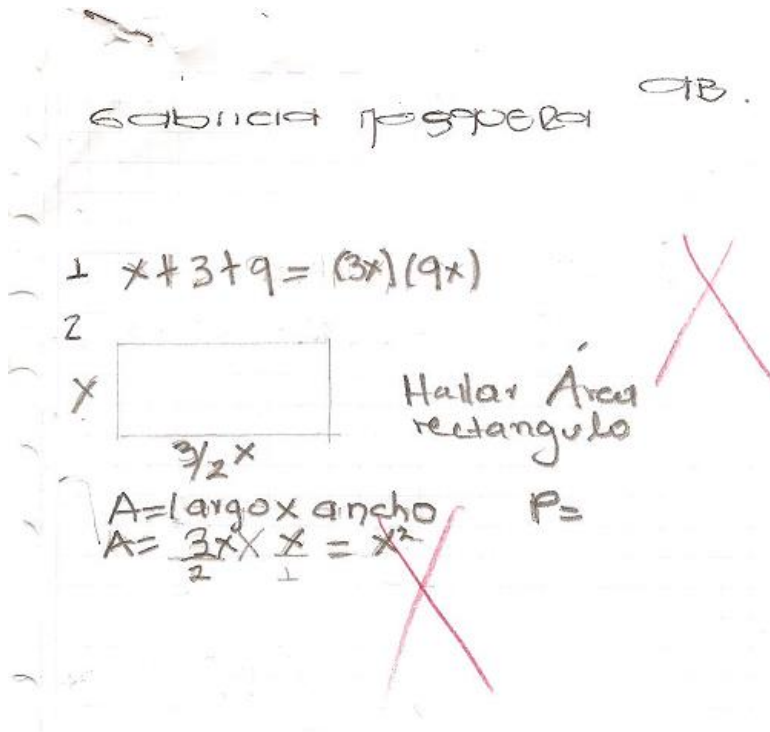 Gabriela Mosquera 9B.
1 x+3+9= (3x)(9x)
2
x
3/2 x
Hallar Área
rectangulo
A=largo x ancho P=
A= 3x/2 X x/1 = x²